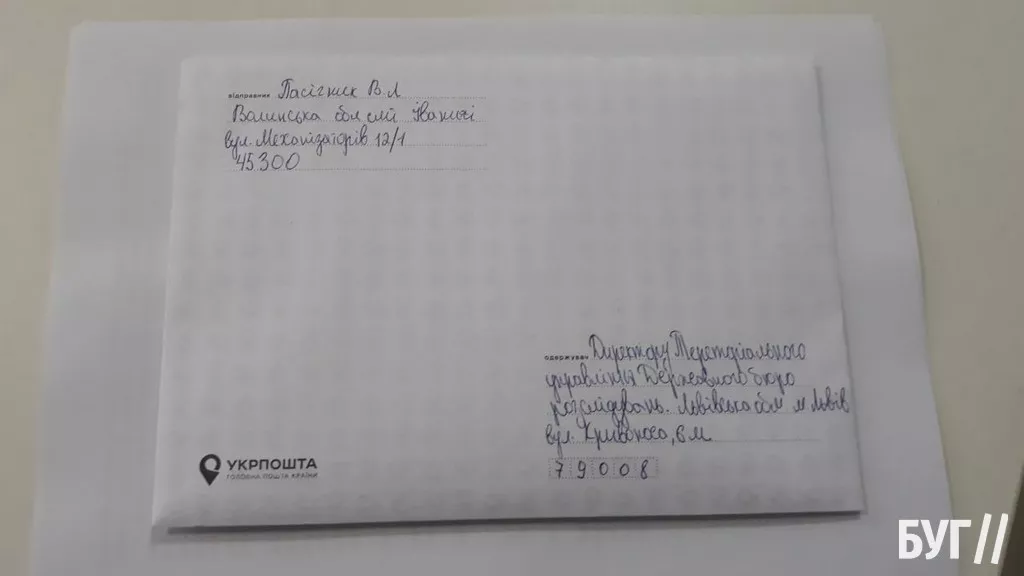 відправник Пасічник В.Л
Волинська обл смт Іваничі
вул. Механізаторів 12/1
45300
одержувач Директору Територіального
управління Державного бюро
розслідувань. Львівська обл м Львів
вул. Кривоноса, 6 м.
79008
УКРПОШТА
ГОЛОВНА ПОШТА КРАЇНИ
БУГ //